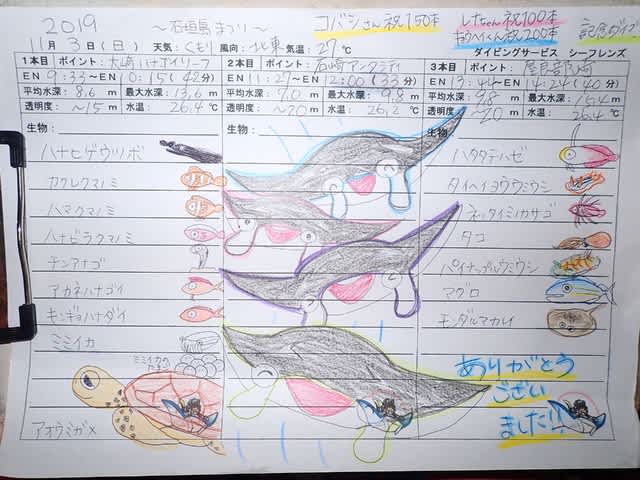 2019
～石垣島まつり～
コバシさん祝150本
しナちゃん祝100本
キョウヘイくん祝200本
記念ダイブ
11月3日(日) 天気:くもり 風向:北東 気温:27℃
ダイビングサービス シーフレンズ
1本目 ポイント:大崎ハナゴイリーフ
EN 9:33～EN 10:15(42分)
平均水深:8.6m 最大水深:13.6m
透明度:～15m 水温:26.4℃
生物:
ハナヒゲウツボ
カクレクマノミ
ハマクマノミ
ハナビラクマノミ
チンアナゴ
アカネハナゴイ
キンギョハナダイ
ミミイカ
ミミイカのたまご
アオウミガメ
2本目 ポイント:石崎
EN 11:27～EN 12:00(33分)
平均水深:7.0m 最大水深:9.8m
透明度:～20m 水温:26.2℃
生物:
3本目 ポイント:屋良部崎
EN 13:44～EN 14:24(40分)
平均水深:9.8m 最大水深:15.4m
透明度:～20m 水温:26.4℃
生物:
ハタタテハゼ
タイヘイヨウウミウシ
ネッタイミノカサゴ
タコ
パイナップルウミウシ
マグロ
モンダルマカレイ
ありがとう
ござい
ました!!